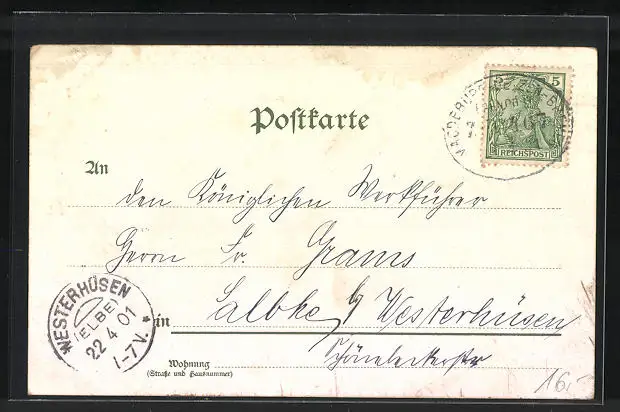 Postkarte
5
REICHSPOST
An
den Königlichen Werkführer
Herrn Fr. Grams
in Salbke b/ Westerhüsen
WESTERHÜSEN
(ELBE)
22 4 01
1-7V.
Wohnung
(Straße und Hausnummer)
Schönebeckerstr
16,-